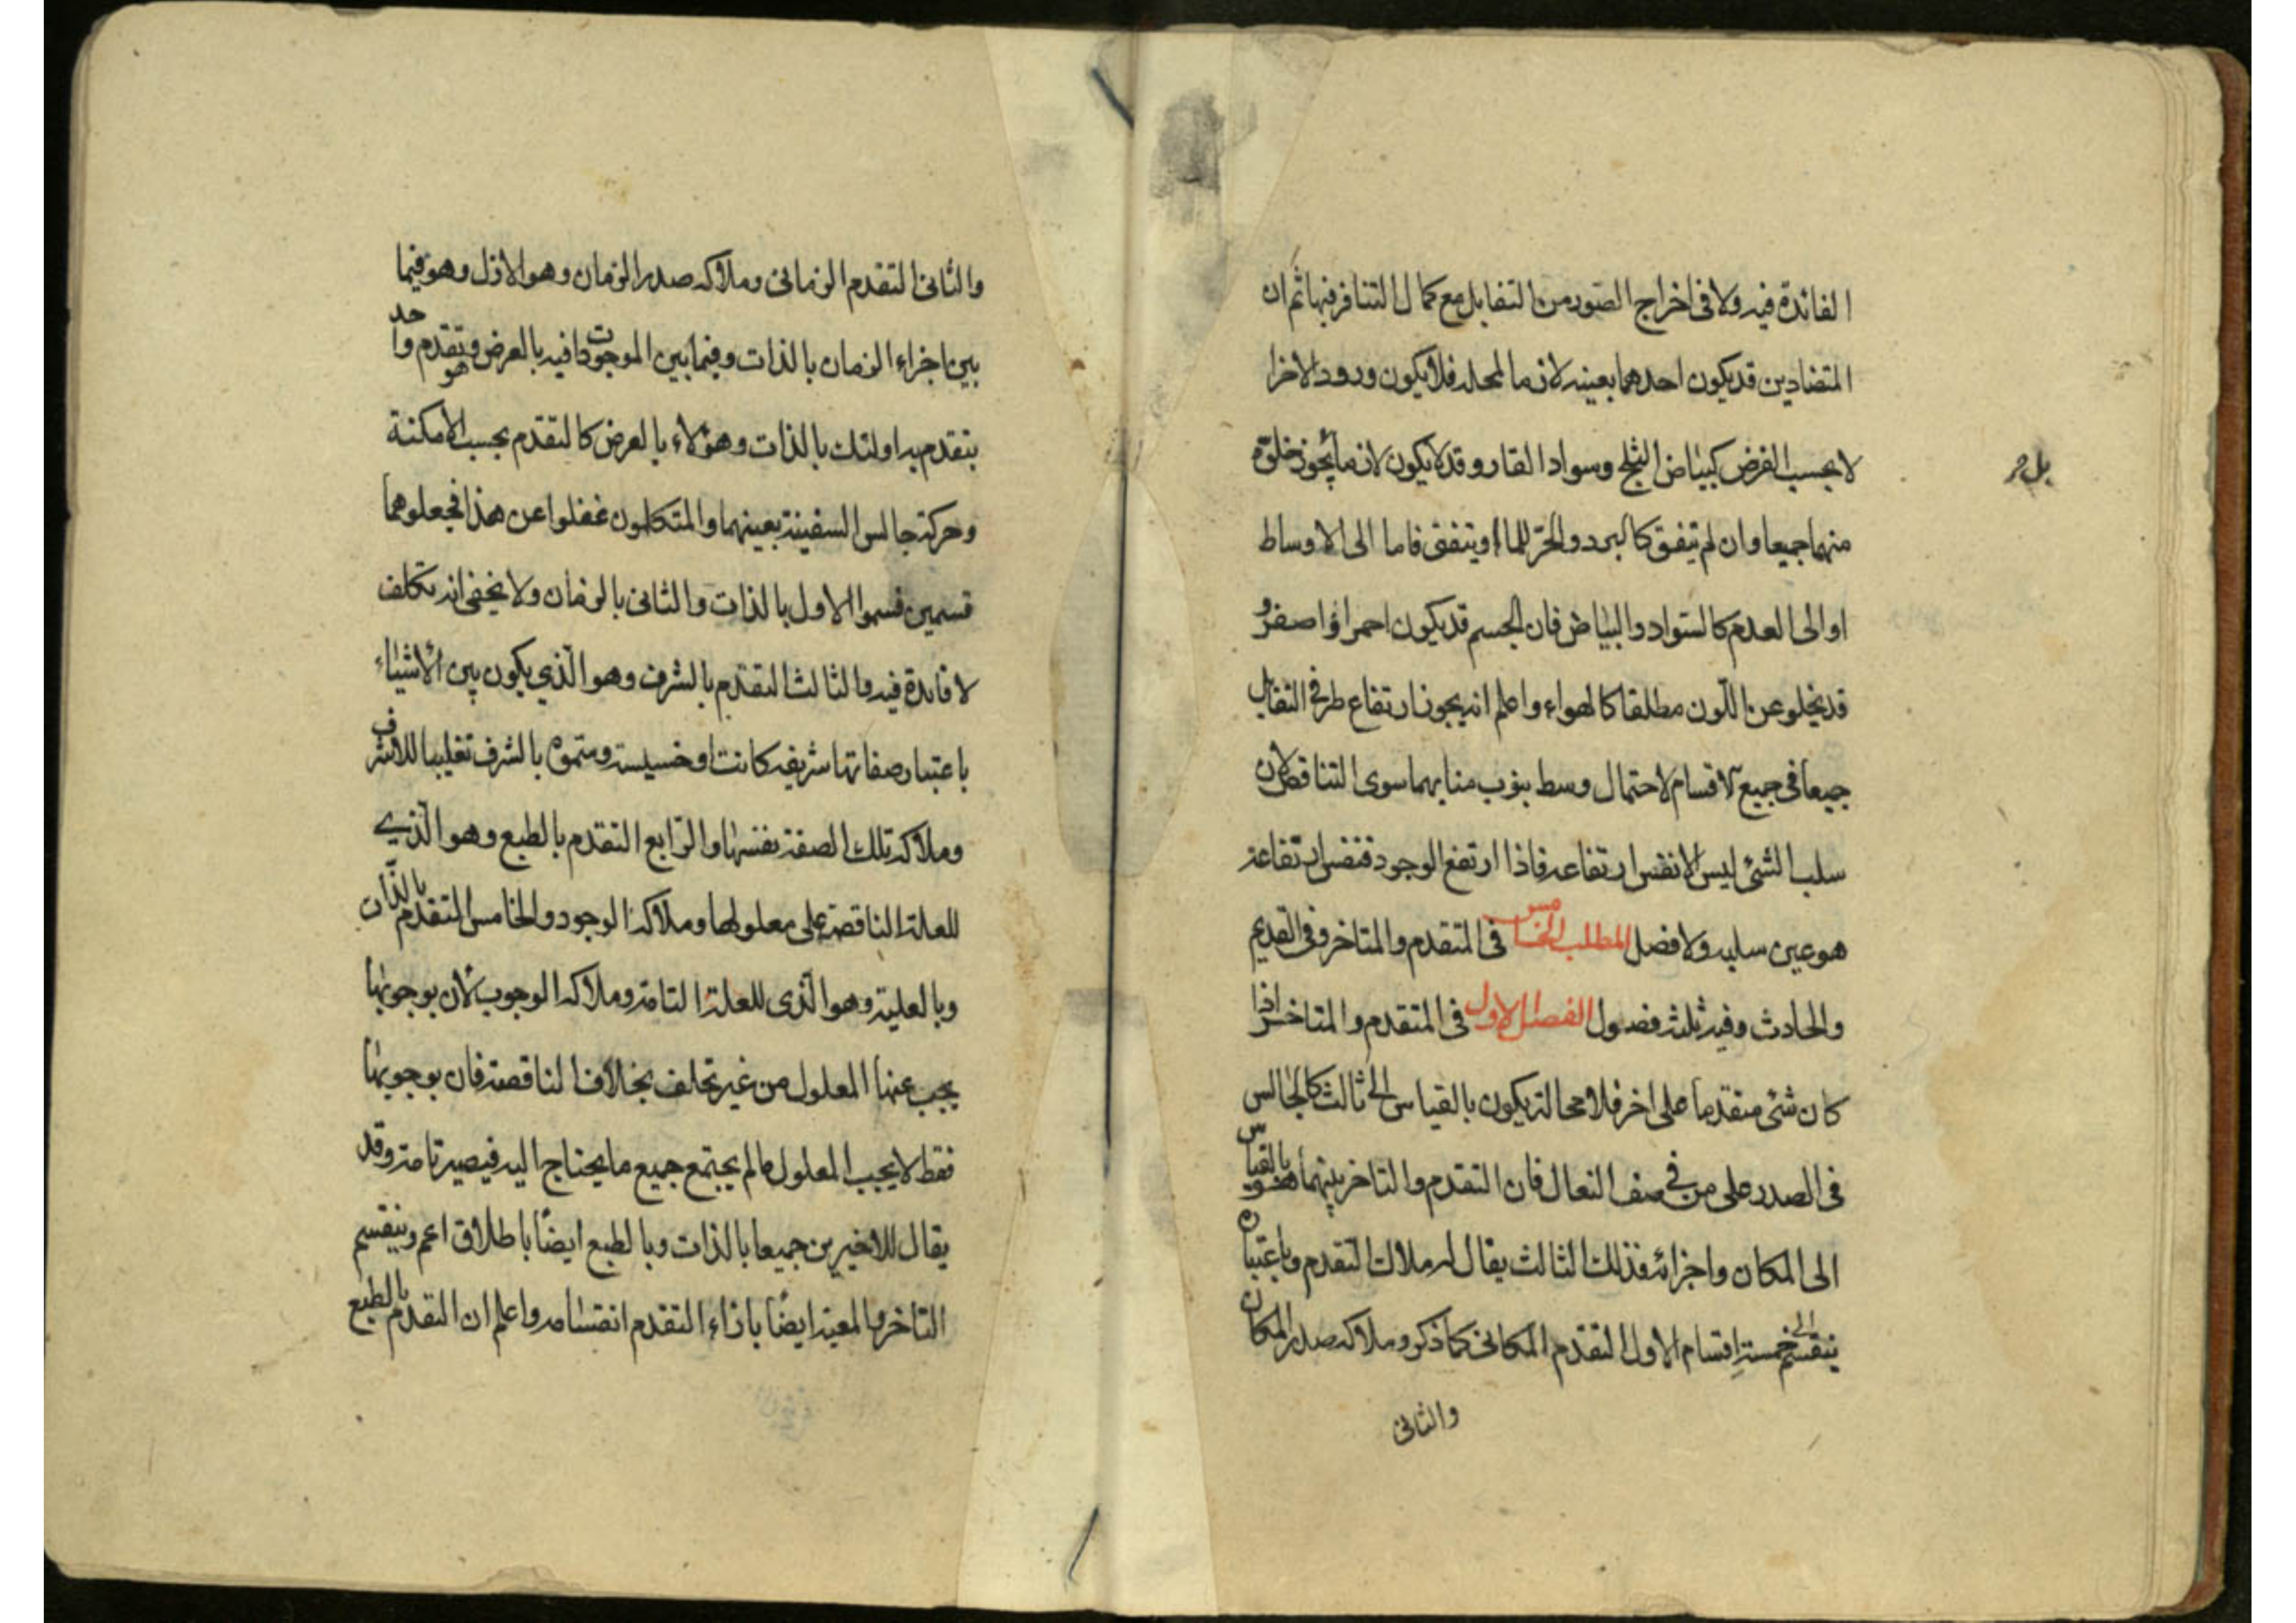 الفائدة فيه ولا فى اخراج الصور من التقابل مع كمال التنافر فيها ثم ان
المتضادين قد يكون احدهما بعينه لازما لمحله فلا يكون ورود الاخر
لا بحسب الفرض كبياض الثلج وسواد القار وقد لا يكون لازما يجوز خلوه
بل
منهما جميعا وان لم يتفق كالبرد والحر للماء او يتفق فاما الى الاوساط
او الى العدم كالسواد والبياض فان الجسم قد يكون احمر او اصفر و
قد يخلو عن اللون مطلقا كالهواء واعلم انه يجوز ارتفاع طرفى التقابل
جميعا فى جميع الاقسام لاحتمال وسط ينوب منابهما سوى التناقض لان
سلب الشئ ليس الا نفس ارتفاعه فاذا ارتفع الوجود فنفس ارتفاعه
هو عين سلبه ولا فصل المطلب الخامس فى المتقدم والمتاخر وفى القديم
والحادث وفيه ثلثة فصول الفصل الاول فى المتقدم والمتاخر اذا
كان شئ متقدما على اخر فلا محالة يكون بالقياس الى ثالث كالجالس
فى الصدر على من فى صف النعال فان التقدم والتاخر بينهما هو بالقياس
الى المكان واجزائه فذلك الثالث يقال له ملاك التقدم وباعتباره
ينقسم الى خمسة اقسام الاول التقدم المكانى كما ذكر وملاكه صدر المكان
والثانى
والثانى التقدم الزمانى وملاكه صدر الزمان وهو الازل وهو فيما
بين اجزاء الزمان بالذات وفيما بين الموجودات فيه بالعرض وهو تقدم واحد
يتقدم به اولئك بالذات وهؤلاء بالعرض كالتقدم بحسب الامكنة
وحركة جالس السفينة بعينهما والمتكلمون غفلوا عن هذا فجعلوهما
قسمين فسموا الاول بالذات والثانى بالزمان ولا يخفى انه تكلف
لا فائدة فيه والثالث التقدم بالشرف وهو الذي يكون بين الاشياء
باعتبار صفاتها شريفة كانت او خسيسة وسموه بالشرف تغليبا للاشرف
وملاكه تلك الصفة نفسها والرابع التقدم بالطبع وهو الذي
للعلة الناقصة على معلولها وملاكه الوجود والخامس التقدم بالذات
وبالعلية وهو الذى للعلة التامة وملاكه الوجوب لان بوجوبها
يجب عنها المعلول من غير تخلف بخلاف الناقصة فان بوجوبها
فقط لا يجب المعلول ما لم يجتمع جميع ما يحتاج اليه فيصير تامة وقد
يقال للاخيرين جميعا بالذات وبالطبع ايضا باطلاق اعم وينقسم
التاخر والمعية ايضا بازاء التقدم انقسامه واعلم ان التقدم بالطبع